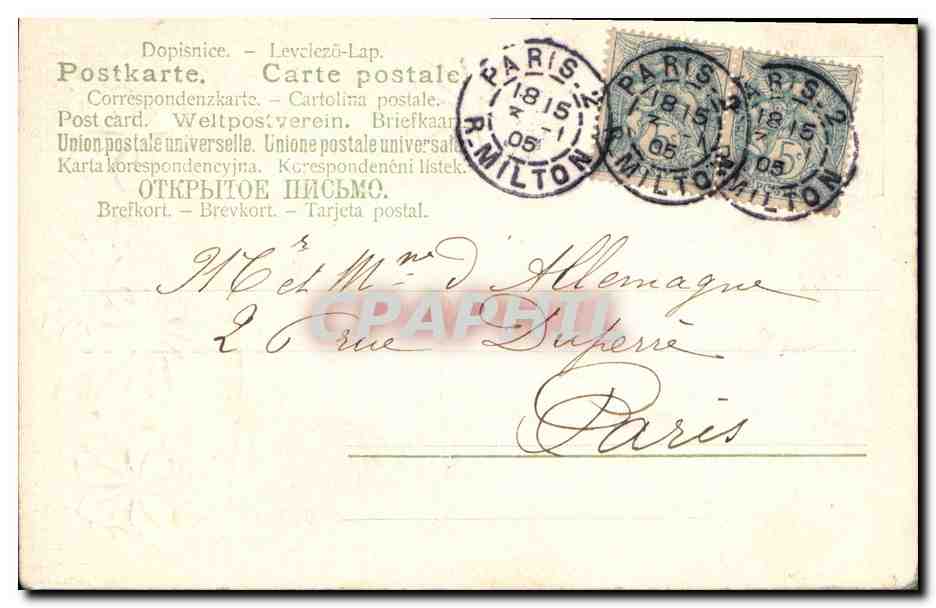 Dopisnice. – Levelező-Lap.
Postkarte. Carte postale
Correspondenzkarte. – Cartolina postale.
Post card. Weltpostverein. Briefkaar
Union postale universelle. Unione postale universal
Karta korespondencyjna. Korespondenční listek.
ОТКРЫТОЕ ПИСЬМО.
Brefkort. – Brevkort. – Tarjeta postal.
PARIS. 2
18 15
05
R. MILTON
PARIS. 2
18 15
05
R. MILTON
5c
2
18 15
05
MILTON
5c
Mr et Mme d'Allemagne
CPAPHIL
2 rue Duperré
Paris